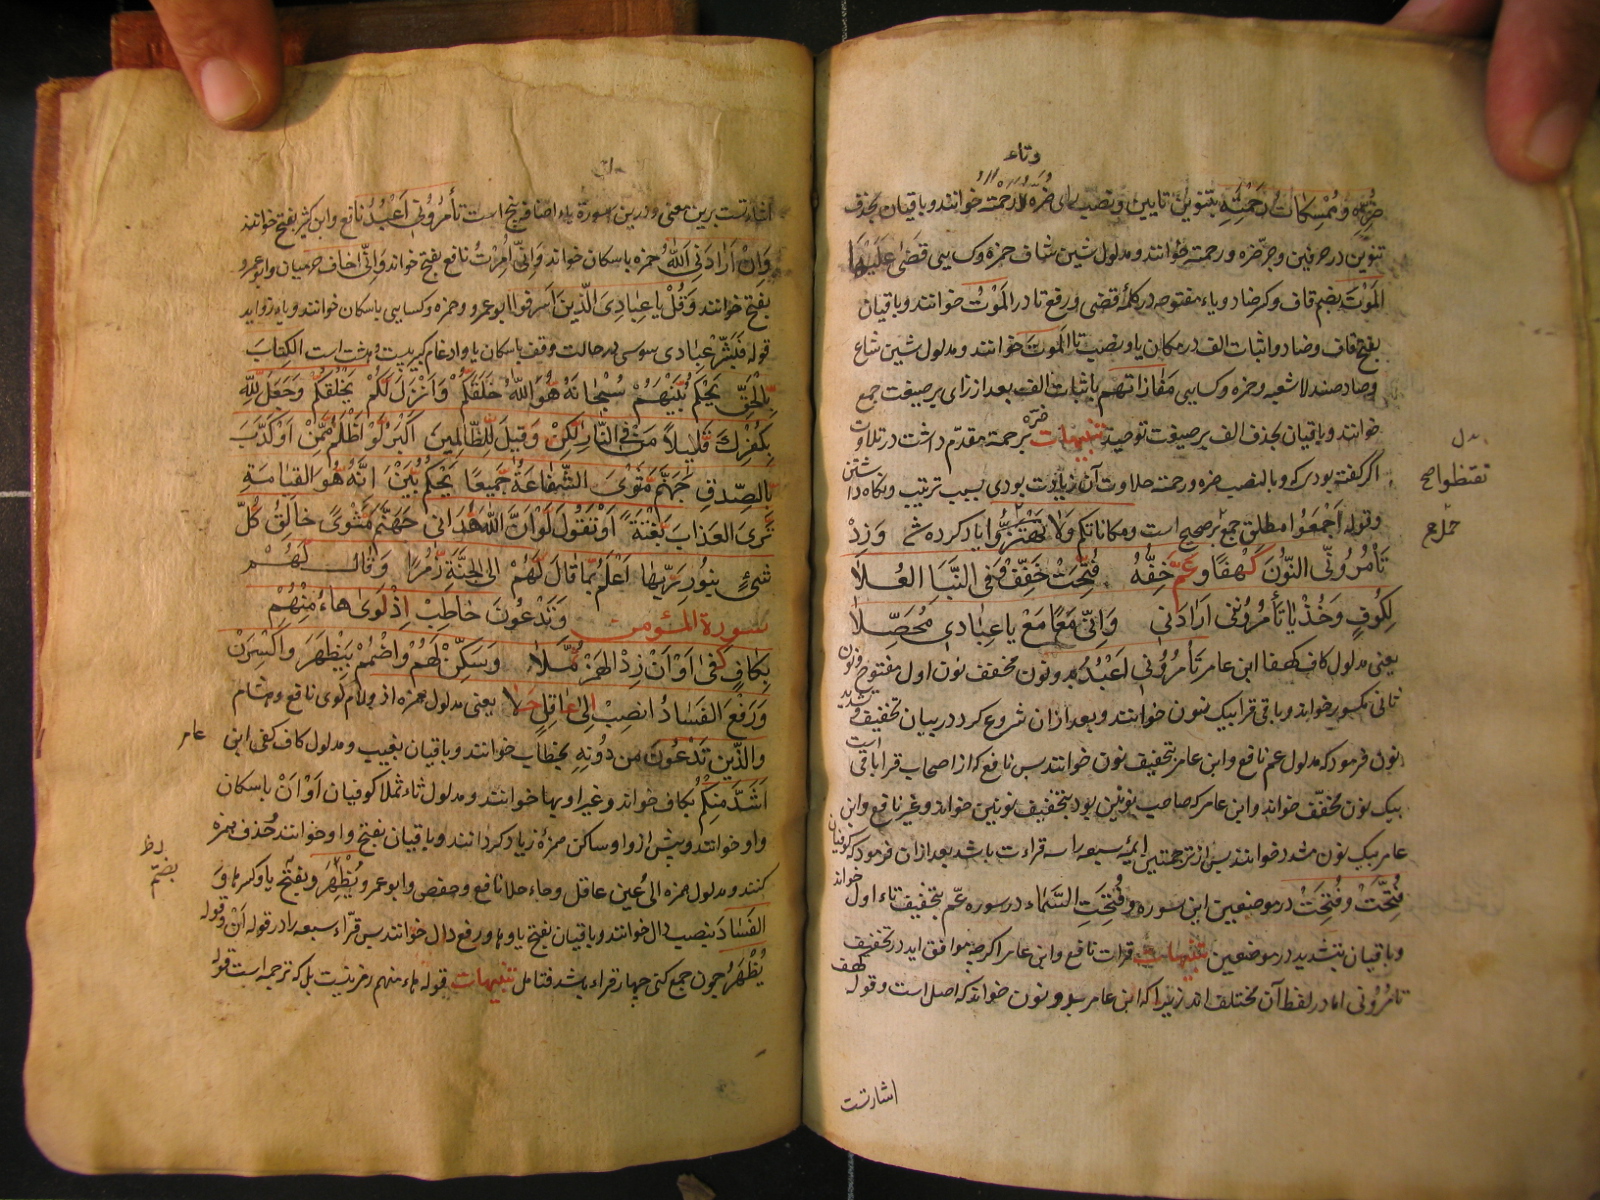 وتاء
ضره وممسكات رحمته بتنوين تايين ونصب راى ضره ورحمته خوانند وباقيان بحذف
تنوين در حرفين وجر ضره ورحمته خوانند ومدلول شين شاف حمزه وكسايى قضى عليها
الموت بضم قاف وكسر ضاد وياء مفتوحه در كلمۀ قضى ورفع تا در الموت خوانند وباقيان
بفتح قاف وضاد واثبات الف در مكان يا ونصب تا الموت خوانند ومدلول شين شاع
وصاد صندلا شعبه وحمزه وكسايى مفازاتهم باثبات الف بعد از زاى بر صيغت جمع
خوانند وباقيان بحذف الف بر صيغت توحيد تنبيهات ضره بر رحمة مقدم داشت در تلاوت
اگر گفته بودى كه وبالنصب ضره ورحمته حلاوت آن زيادت بودى بسبب ترتيب ونگاه داشتن
وقوله اجمعوا مطلق جمع بر صحيح است ومكاناتكم ولا ياد كرده شد وزد
تأمرونى النون كهفا وعم خفه فتحت خفف وفى النبا العلا
لكوف وخذ يا تأمرونى ارادنى وانى معا مع يا عبادى محصلا
يعنى مدلول كاف كهفا ابن عامر تأمرونى اعبد بدو نون مخفف نون اول مفتوح ونون
ثانى مكسور خواند وباقى قرا بيك نون خوانند وبعد ازان شروع كرد در بيان تخفيف وتشديد
نون فرمود كه مدلول عم نافع وابن عامر بتخفيف نون خوانند پس نافع كه از اصحاب قرا باقى است
بيك نون مخفف خواند وابن عامر كه صاحب نونين بود بتخفيف نونين خواند وغير نافع وابن
عامر بيك نون مشدد خوانند پس از ترجمتين ايمۀ سبعه را سه قراءت باشد بعد ازان فرمود كه كوفيان
فتحت وفتحت در موضعين اين سوره وفتحت السماء در سوره عم بتخفيف تاء اول خواند
وباقيان بتشديد در موضعين تنبيهات قرات نافع وابن عامر اگرچه موافق ايد در تخفيف
تامرونى اما در لفظ آن مختلف اند زيرا كه ابن عامر بدو نون خواند كه اصل است وقوله كهف
اشارتست
اشارتست برين معنى ودرين سورة ياء اضافه پنج است تأمرونى اعبد نافع وابن كثير بفتح خوانند
وان ارادنى الله حمزه باسكان خواند وانى امرت نافع بفتح خواند وانى اخاف حرميان وابو عمرو
بفتح خوانند وقل يا عبادى الذين اسرفوا ابو عمرو وحمزه وكسايى باسكان خوانند وياء زوايد
قوله فبشر عبادى سوسى در حالت وقف باسكان يا وادغام كبير است الكتاب
بالحق يحكم بينهم سبحانه هو الله خلقكم وانزل لكم يخلقكم وجعل لله
بكفرك قليلا من فى النار لكن وقيل للظالمين اكبر لو اظلم ممن او كذب
بالصدق جهنم مثوى الشفاعة جميعا يحكم بين انه هو القيامة
ترى العذاب بغتة او تقول لو ان الله هدانى جهنم مثوى خالق كل
شىء بنور ربها اعلم بما قال لهم الى الجنة زمرا وقال لهم
سورة المؤمن وتدعون خاطب اذ لوى هاء منهم
بكاف كفى او ان زد الهمز ثملا وسكن لهم واضمم بيظهر واكسرن
ورفع الفساد انصب الى عاقل حلا يعنى مدلول همزه اذ ولام لوى نافع وهشام
والذين تدعون من دونه بخطاب خوانند وباقيان بغيب ومدلول كاف كفى ابن عامر
اشد منكم بكاف خواند وغير او بها خوانند ومدلول ثاء ثملا كوفيان او ان باسكان
واو خوانند وپيش از واو ساكن همزۀ زياد كردانند وباقيان بفتح واو خوانند وحذف همزه
كنند ومدلول همزه الى وعين عاقل وحاء حلا نافع وحفص وابو عمرو ويظهر وكسر ها
الفساد بنصب دال خوانند وباقيان بفتح يا وها ورفع دال خوانند پس قراء سبعه را در قوله ان وقوله
يظهر چون جمع كنى چهار قراءه باشد فتامل تنبيهات قوله هاء منهم رمز نيست بل كه ترجمه است قوله
عامر
بضم